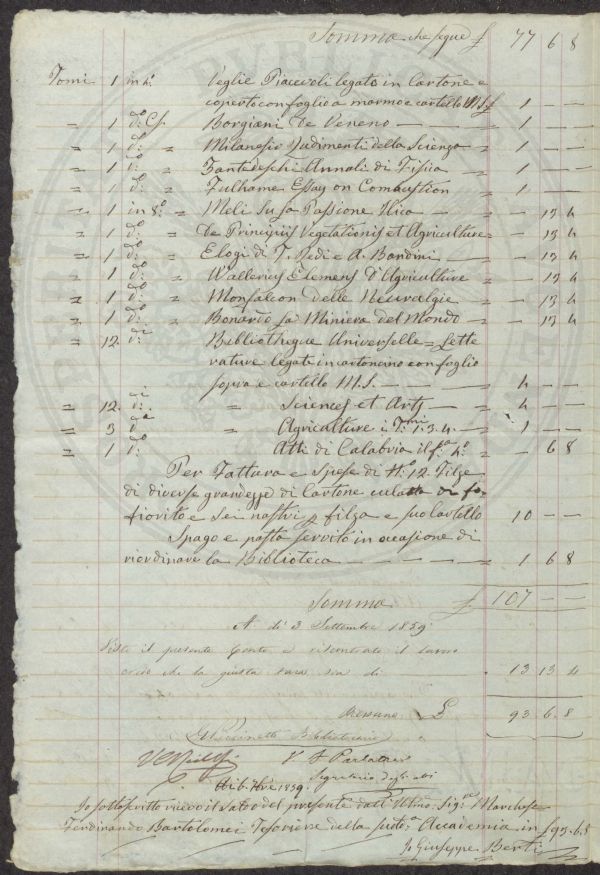 Somma che segue £ 77 6 8
Tomi 1 in 4.º Veglie Piacevoli legato in Cartone e
coperto con foglio a marmo e cartello M.S. 1 — —
= 1 d.º Borgiani De Veneno — 1 — —
= 1 d.º = Milanesio Rudimenti della Scienza = 1 — —
= 1 d.º = Zantedeschi Annali di Fisica = 1 — —
= 1 d.º = Fulhame Essay on Combustion = 1 — —
= 1 in 8.º = Meli Su la Passione Iliaca — = — 13 4
= 1 d.º = De Principiis Vegetationis et Agriculture = — 13 4
= 1 d.º = Elogi di F. Redi e A. Bandini — = — 13 4
= 1 d.º = Wallerius Elemens D'Agriculture = — 13 4
= 1 d.º = Monfalcon delle Nevralgie = — 13 4
= 1 d.º = Bonardo La Miniera del Mondo — = — 13 4
= 12 d.i = Bibliotheque Universelle = Lette
rature legate in cartoncino con foglio
sopra e cartello M.S. — 4 — —
= 12. d.i = Sciences et Arts — = 4 — —
= 3 d.i = Agriculture i T.mi 1. 3. 4. — = 1 — —
= 1 d.º Atti di Calabria il f.º 4.º = — 6 8
Per Fattura e Spese di N.º 12 Filze
di diverse grandezze di Cartone
fiorito e sei nastri p filza e suo Cartello 10 — —
Spago e pasta servito in occasione di
riordinare la Biblioteca — 1 6 8
Somma £ 107 — —
A dì 3 Settembre 1839.
Visto il presente Conto e riscontrato il lavoro
credo che la giusta tara sia di 13 13 4
Restano £ 93. 6. 8
Bibliotecario
V. F. Parlatore
Segretario degli atti
1839.
Io sottoscritto ricevo il saldo del presente dall'Ill.mo Sig.r Marchese
Ferdinando Bartolomei Tesoriere della sud.a Accademia in £ 93. 6. 8
Io Giuseppe Berti